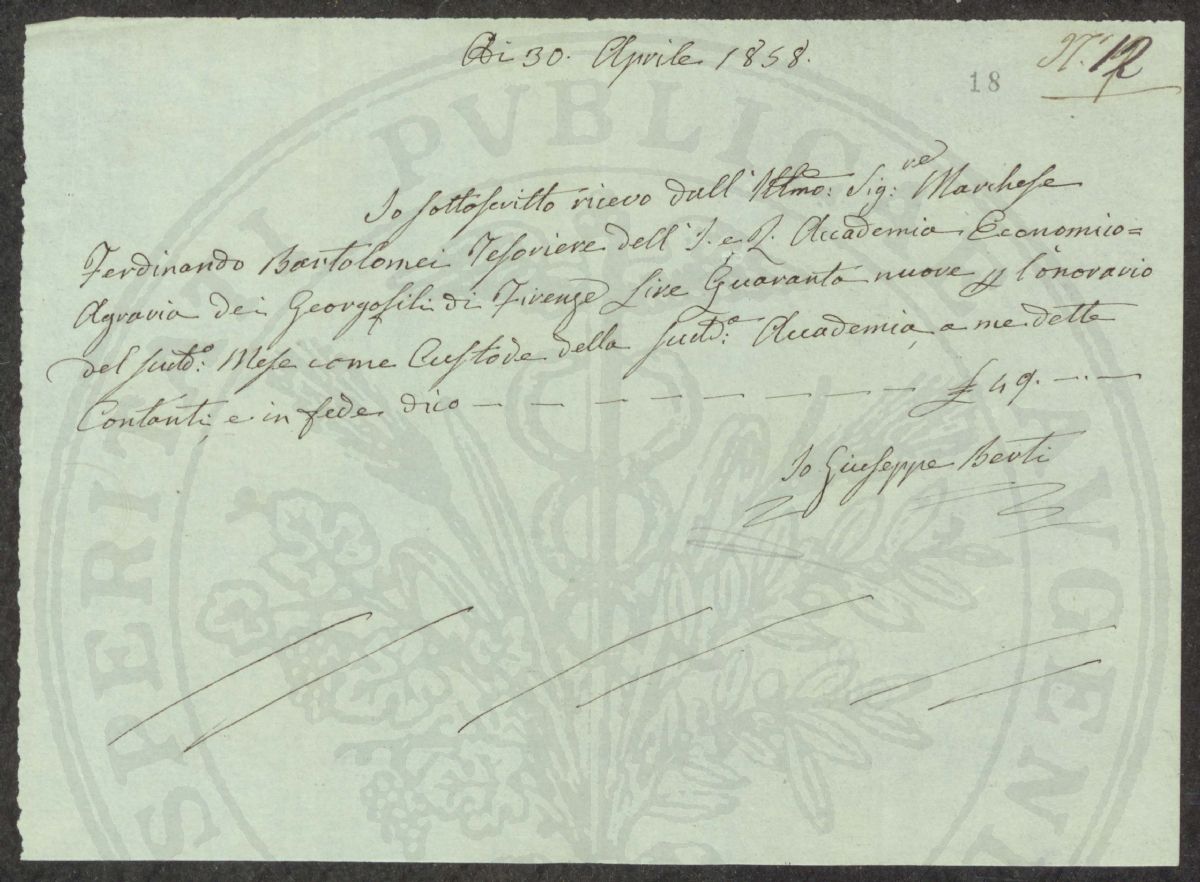 Di 30. Aprile 1858.
N.° 12
18
Io sottoscritto ricevo dall' Illmo: Sig:re Marchese
Ferdinando Bartolomei Tesoriere dell' I. e R. Accademia Economico=
Agraria dei Georgofili di Firenze Lire Quaranta nuove p l'onorario
del sudd:o Mese come Custode della sudd:a Accademia, a me dette
Contanti, e in fede dico — — — — — — — — £ 49. —.—
Io Giuseppe Berti
PROSPERITATI PVBLICAE AVGENDAE